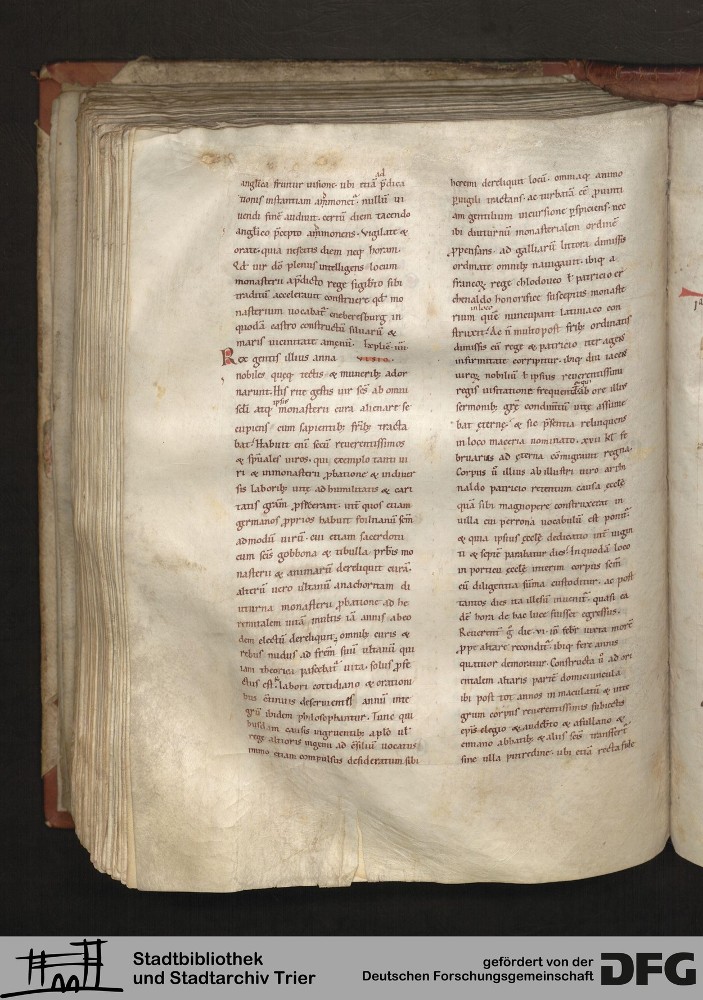 ad
anglica fruitur uisione. ubi etiā p̄dica
tionis instantiam ammonet᷑. nullū ui
uendi finē audiuit. certū diem tacendo
anglico p̄cepto ammonens. Vigilate &
orate. quia nescitis diem neq; horam.
Qđ uir dō plenus intelligens locum
monasterii apdicto rege sigibto sibi
traditū accelerauit construere qđ mo
nasterium uocabat᷑ eneberesburg in
quodā castro constructū siluarū &
maris uicinitate amenū. Explic̄ .iiii.
Rex gentis illius anna uisio.
nobiles queq; tectis & muneribꝫ ador
narunt. His rite gestis uir sc̄s ab omni
ipsiꝰ
sc̄li atq; monasterii cura alienare se
cupiens cum sapientibꝫ fr̄ibꝫ tracta
bat. Habuit eni secū reuerentissimos
& spūales uiros. qui exemplo tanti ui
ri & in monasterii pbatione & indiuer
sis laboribꝫ uitę ad humilitatis & cari
tatis gr̄am pficerant. inter quos etiam
germanos pprios habuit foilnanū sc̄m
ad modū uirū. cui etiam sacerdotii
cum sc̄is gobbona & tibulla pr̄bris mo
nasterii & animarū dereliquit curā.
alterū uero ultanū anachoritam di
uturna monasterii pbatione ad he
remitalem uitā multis iā annis abeo
dem electū dereliquit. omnibꝫ curis &
rebus nudus ad fr̄em suū ultanū qui
iam theorica pascebat᷑ uita. solus pfe
ctus est. labori cottidiano & orationi
bus c̄tinuis deseruientes annū inte
grū ibidem philosophantur. Tunc qui
busdam causis ingruentibꝫ aplo ul
rege altioris ingenii ad c̄siliū uocatus
immo etiam compulsus desideratum sibi
heremi dereliquit locū. omniaq; animo
puigili tractans. ac turbatā eē puinti
am gentilium incursione pspiciens. nec
ibi diuturnū monasterialem ordinē
ppensans. ad galliarū littora dimissis
ordinate omnibꝫ nauigauit. ibiq; a
francoꝝ rege chlodoueo ł patricio er
chenaldo honorifice susceptus monaste
in loco
rium que nuncupant latiniaco con
struxit. Ac n̄ multo post fr̄ibꝫ ordinatis
dimissis cū rege & patricio iter agens
infirmitate corripitur. ibiq; diu iacens
uiroꝝ nobiliū ł ipsius reuerentissimi
regis uisitatione frequentat᷑ ab ore illius
sermonibꝫ gr̄ę conditum uitę assume
bat ęterne. & sic p̄sentia relinquens
in loco maceria nominato. xvii. kl fe
bruarias ad ęterna c̄migrauit regna.
Corpus ū illius ab illustri uiro archi
naldo patricio retentum causa ęcclę
quā sibi magnopere construxerat in
uilla cui perrona uocabulū est ponit᷑.
& quia ipsius ęcclę dedicatio int uigin
ti & septē parabatur dies. In quodā loco
in porticu ęcclę interim corpus sc̄m
cū diligentia sūma custoditur. ac post
tantos dies ita illesū inuenit᷑. quasi ea
dē hora de hac luce fuisset egressus.
Reuerent᷑ g̊ die .vi. in febr̄ iuxta morē
ppe altare recondit᷑. ibiq; fere annis
quatuor demoratur. Constructa ū ad ori
entalem altaris partē domicuncula
ibi post tot annos inmaculatū & inte
grum corpus reuerentissimis subiectis
epis elegio & audebto & asullano &
emiano abbatibꝫ & aliis sc̄is transfert᷑
sine ulla putredine. ubi etiā recta fide
Stadtbibliothek
und Stadtarchiv Trier
gefördert von der
Deutschen Forschungsgemeinschaft
DFG